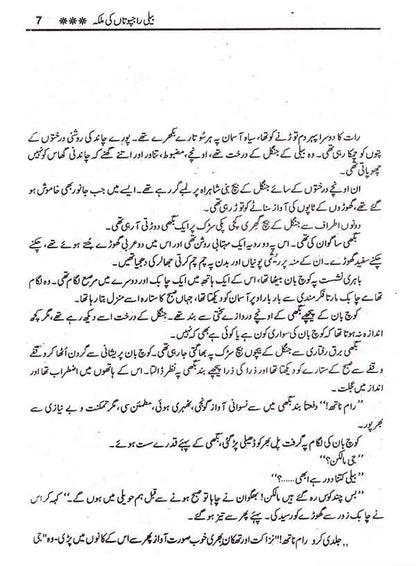 بیلی راجپوتاں کی ملکہ ⁕⁕⁕ 7
رات کا دوسرا پہر دم توڑنے کو تھا، سیاہ آسمان پہ ہر سو تارے بکھرے تھے۔ پورے چاند کی روشنی درختوں کے
پتوں کو چمکا رہی تھی۔ وہ بیلی کے جنگل کے درخت تھے، اونچے، مضبوط، تناور اور اتنے گھنے کہ چاندنی گھاس کو نہیں
چھو پاتی تھی۔
ان اونچے درختوں کے سائے جنگل کے بیچ بنی شاہراہ پر لمبے گر رہے تھے۔ ایسے میں جب جانور بھی خاموش ہو
گئے تھے، گھوڑوں کے ٹاپوں کی آواز سناٹے کو توڑ رہی تھی۔
دونوں اطراف سے جنگل کے بیچ گھری کچی پکی سڑک پر ایک بگھی دوڑتی آ رہی تھی۔
بگھی ساگوان کی تھی۔ اس پہ دو رویہ ایک مہتابی روشن تھی اور اس میں دو عربی گھوڑے جتے ہوئے تھے، چکنے
چکنے سفید گھوڑے۔ ان کے منہ پر ریشمی پونیاں اور بدن پہ چم چم کرتی جھالر کی دھجیاں تھیں۔
باہری نشست پہ کوچ بان بیٹھا تھا، اس کے ایک ہاتھ میں ایک چابک اور دوسرے میں مرصع لگام تھی۔ وہ لگام
تھامے چابک مارتا فکر مندی سے بار بار اوپر آسمان کو دیکھتا تھا، جہاں صبح کا ستارہ اسے منزل بتا رہا تھا۔
کوچ بان کے پیچھے بگھی کے اونچے دروازے سختی سے بند تھے۔ جنگل کے درخت اسے دیکھ رہے تھے، مگر کچھ
اندازہ نہ ہوتا تھا کہ کوچ بان کی سواری کون ہے یا کوئی ہے بھی کہ نہیں۔
بگھی برق رفتاری سے جنگل کے بیچوں بیچ سڑک پہ بھاگتی جا رہی تھی۔ کوچ بان پریشانی سے گردن اٹھا کر وقفے
وقفے سے صبح کے ستارے کو دیکھتا تھا اور ذرا کی ذرا پیچھے بگھی پہ نظر ڈالتا۔ اس کے ہاتھوں میں اضطراب تھا اور
انداز میں عجلت۔
”رام ناتھ!“ دفعتا بند بگھی میں سے نسوانی آواز گونجی، ٹھہری ہوئی، مطمئن سی، مگر تمکنت و بے نیازی سے
بھرپور۔
کوچ بان کی لگام پہ گرفت پل بھر کو ڈھیلی پڑ گئی، بگھی کے پہیے قدرے سست ہوئے۔
”جی مالکن؟“
”بیلی کتنا دور ہے ابھی......؟“
”بس چند کوس رہ گئے ہیں مالکن! بھگوان نے چاہا تو صبح ہونے سے قبل ہم حویلی میں ہوں گے۔“ کہہ کر اس
نے چابک زور سے گھوڑے کو رسید کی۔ پہیے پھر سے تیز ہو گئے۔
”جلدی کرو رام ناتھ!“ نزاکت اور تھکان بھری خوب صورت آواز پھر سے اس کے کانوں میں پڑی۔ وہ ”جی